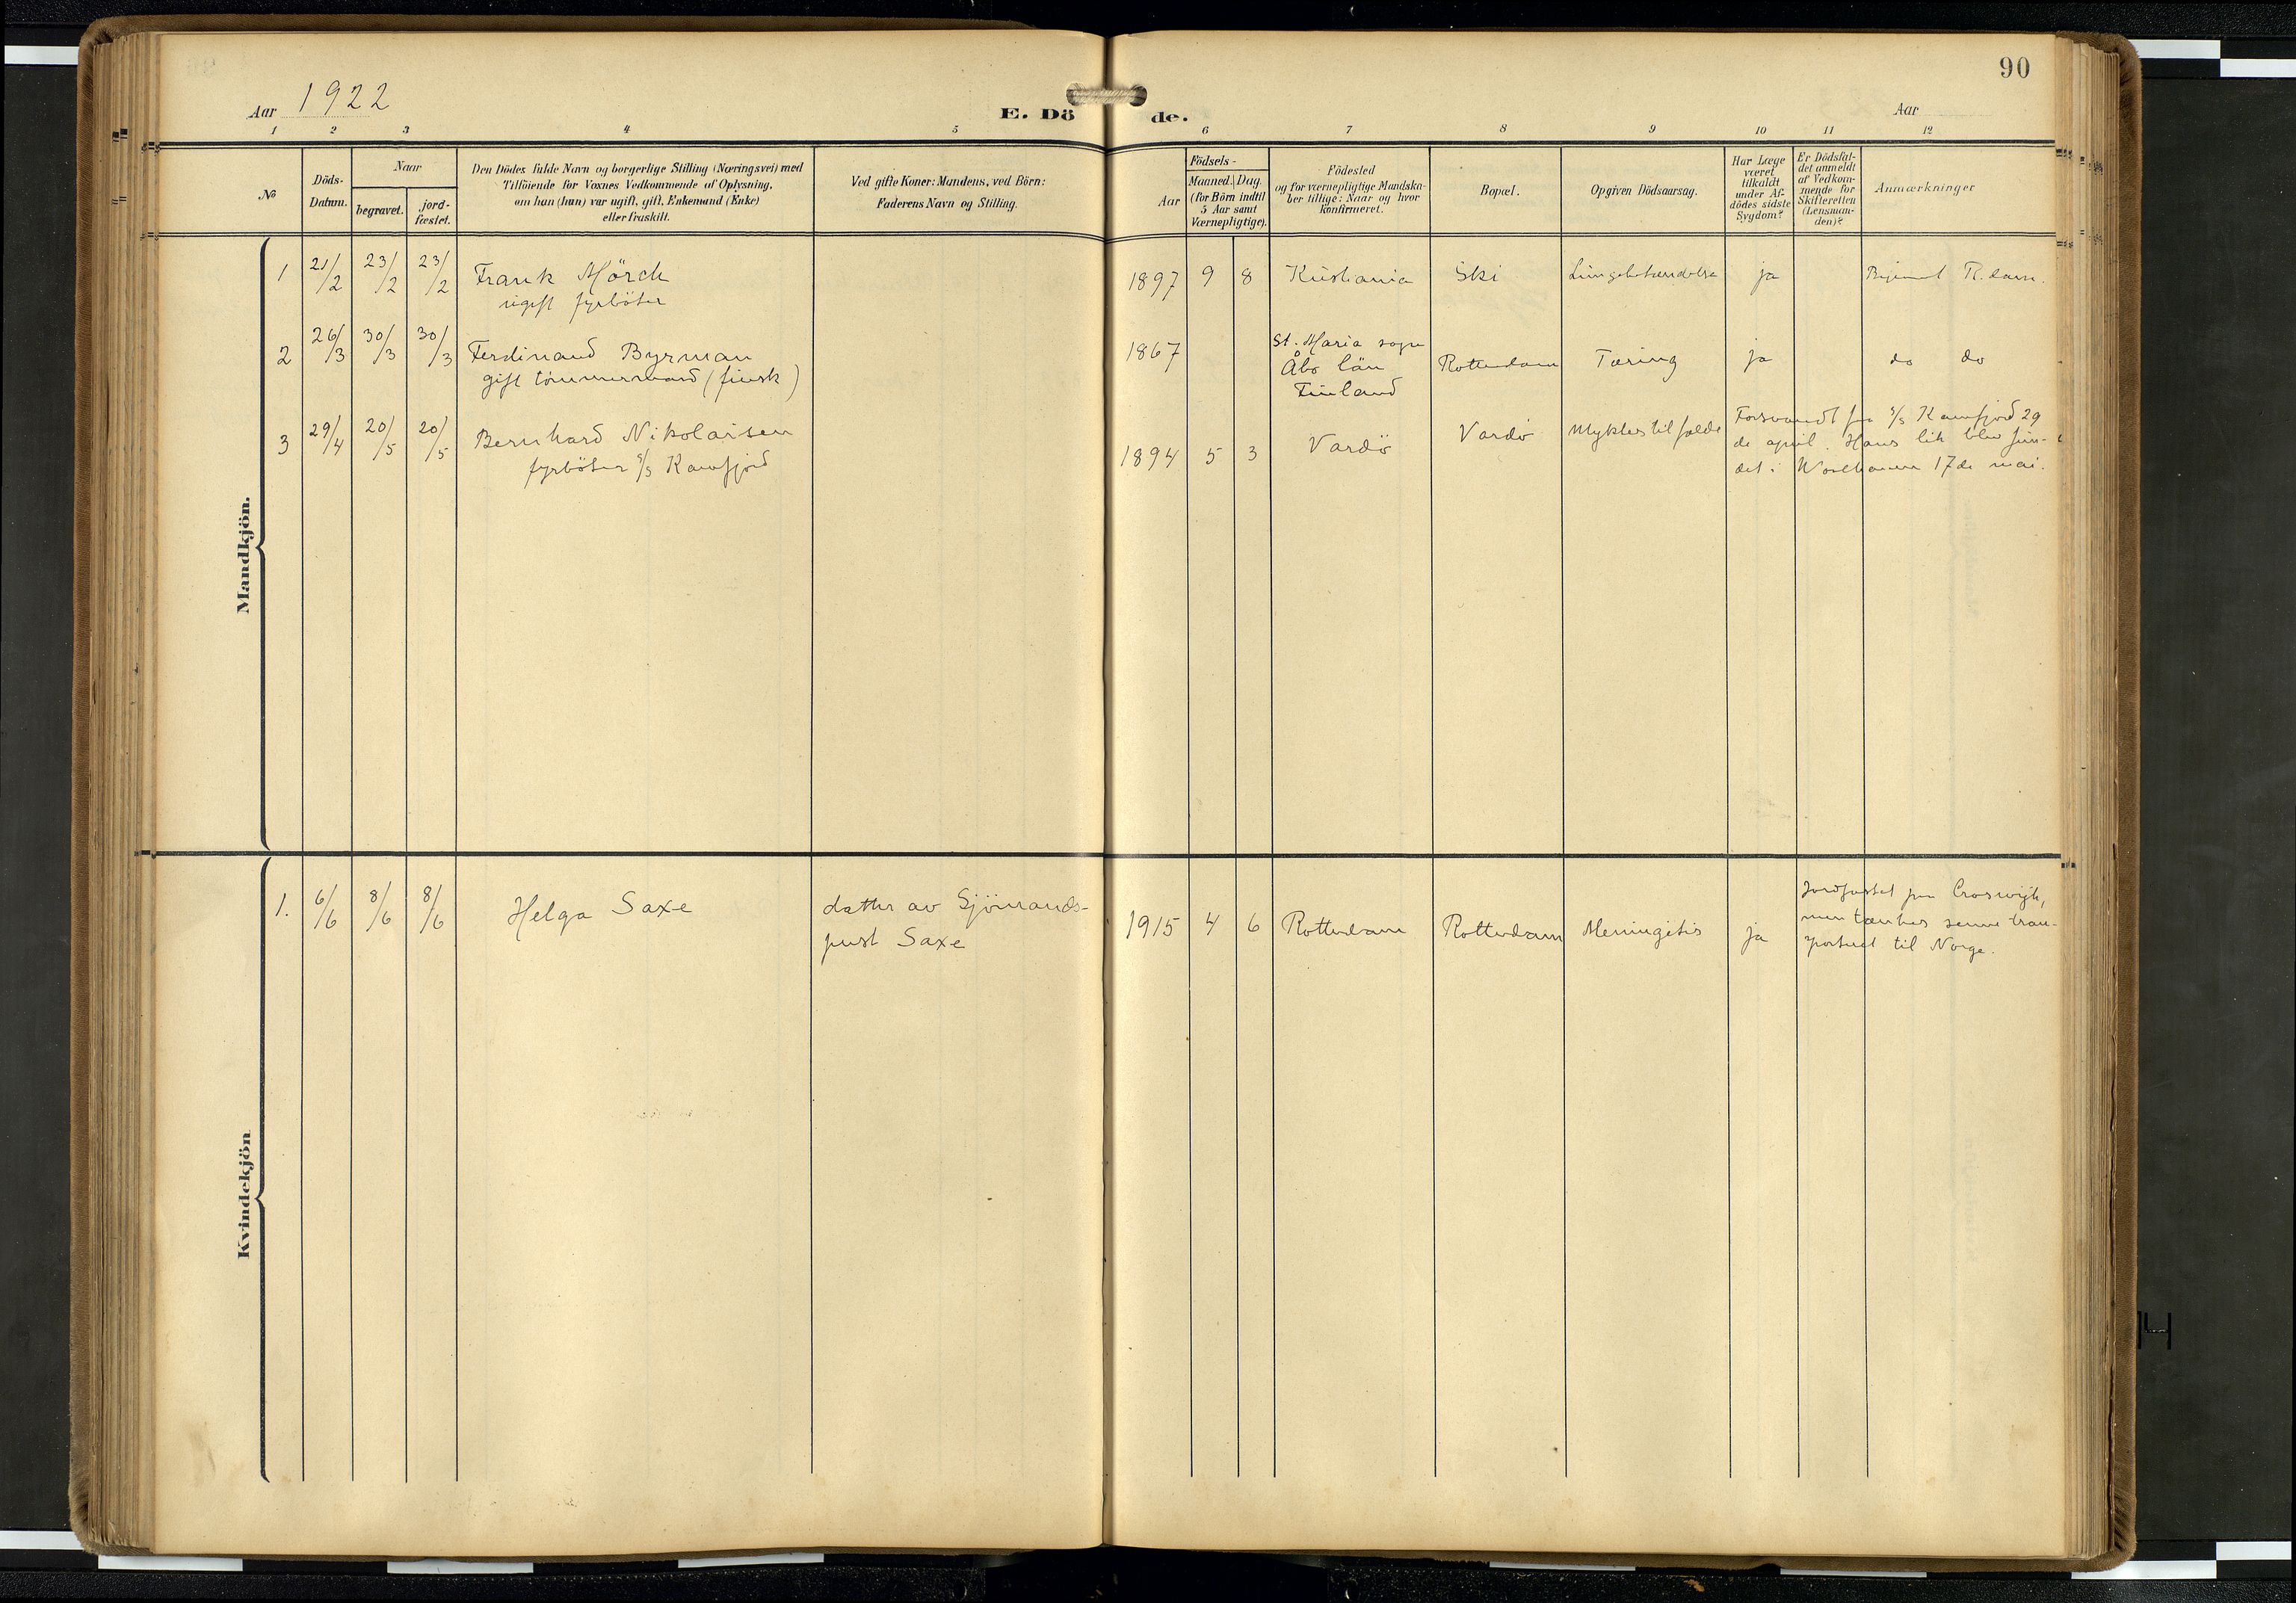 90
Aar 1922
E. Dö de.
Aar
1 2 3 4 5 6 7 8 9 10 11 12
No
Döds-
Datum.
Naar
begravet.
jord-
fæstet.
Den Dödes fulde Navn og borgerlige Stilling (Næringsvei) med
Tilföiende for Voxnes Vedkommende af Oplysning,
om han (hun) var ugift, gift, Enkemand (Enke)
eller fraskilt.
Ved gifte Koner: Mandens, ved Börn:
Faderens Navn og Stilling.
Aar
Födsels-
Maaned. Dag.
(for Börn indtil
5 Aar samt
Værnepligtige).
Födested
og for værnepligtige Mandska-
ber tillige: Naar og hvor
konfirmeret.
Bopæl.
Opgiven Dödsaarsag.
Har Læge
været
tilkaldt
under Af-
dödes sidste
Sygdom?
Er Dödsfal-
det anmeldt
af Vedkom-
mende for
Skifteretten
(Lensman-
den)?
Anmærkninger
Mandkjön.
1 21/2 23/2 23/2 Frank Mörch 1897 9 8 Kristiania Ski Lungebetændelse ja R. dam.
ugift fyrböter
2 26/3 30/3 30/3 Ferdinand Byrman 1867 St. Maria sogn Rotterdam Tæring ja do do
gift tömmermand (finsk) Åbo län
Finland
3 29/4 20/5 20/5 Bernhard Nikolaisen 1894 5 3 Vardö Vardö Ulykkestilfælde Forsvandt fra s/s Kamfjord 29
fyrböter s/s Kamfjord de april. Hans lik blev fun-
det i 17de mai.
Kvindekjön
1. 6/6 8/6 8/6 Helga Saxe datter av Sjömands- 1915 4 6 Rotterdam Rotterdam Meningitis ja Jordfæstet paa Croswijk,
prest Saxe men tænkes senere tran-
sportert til Norge.